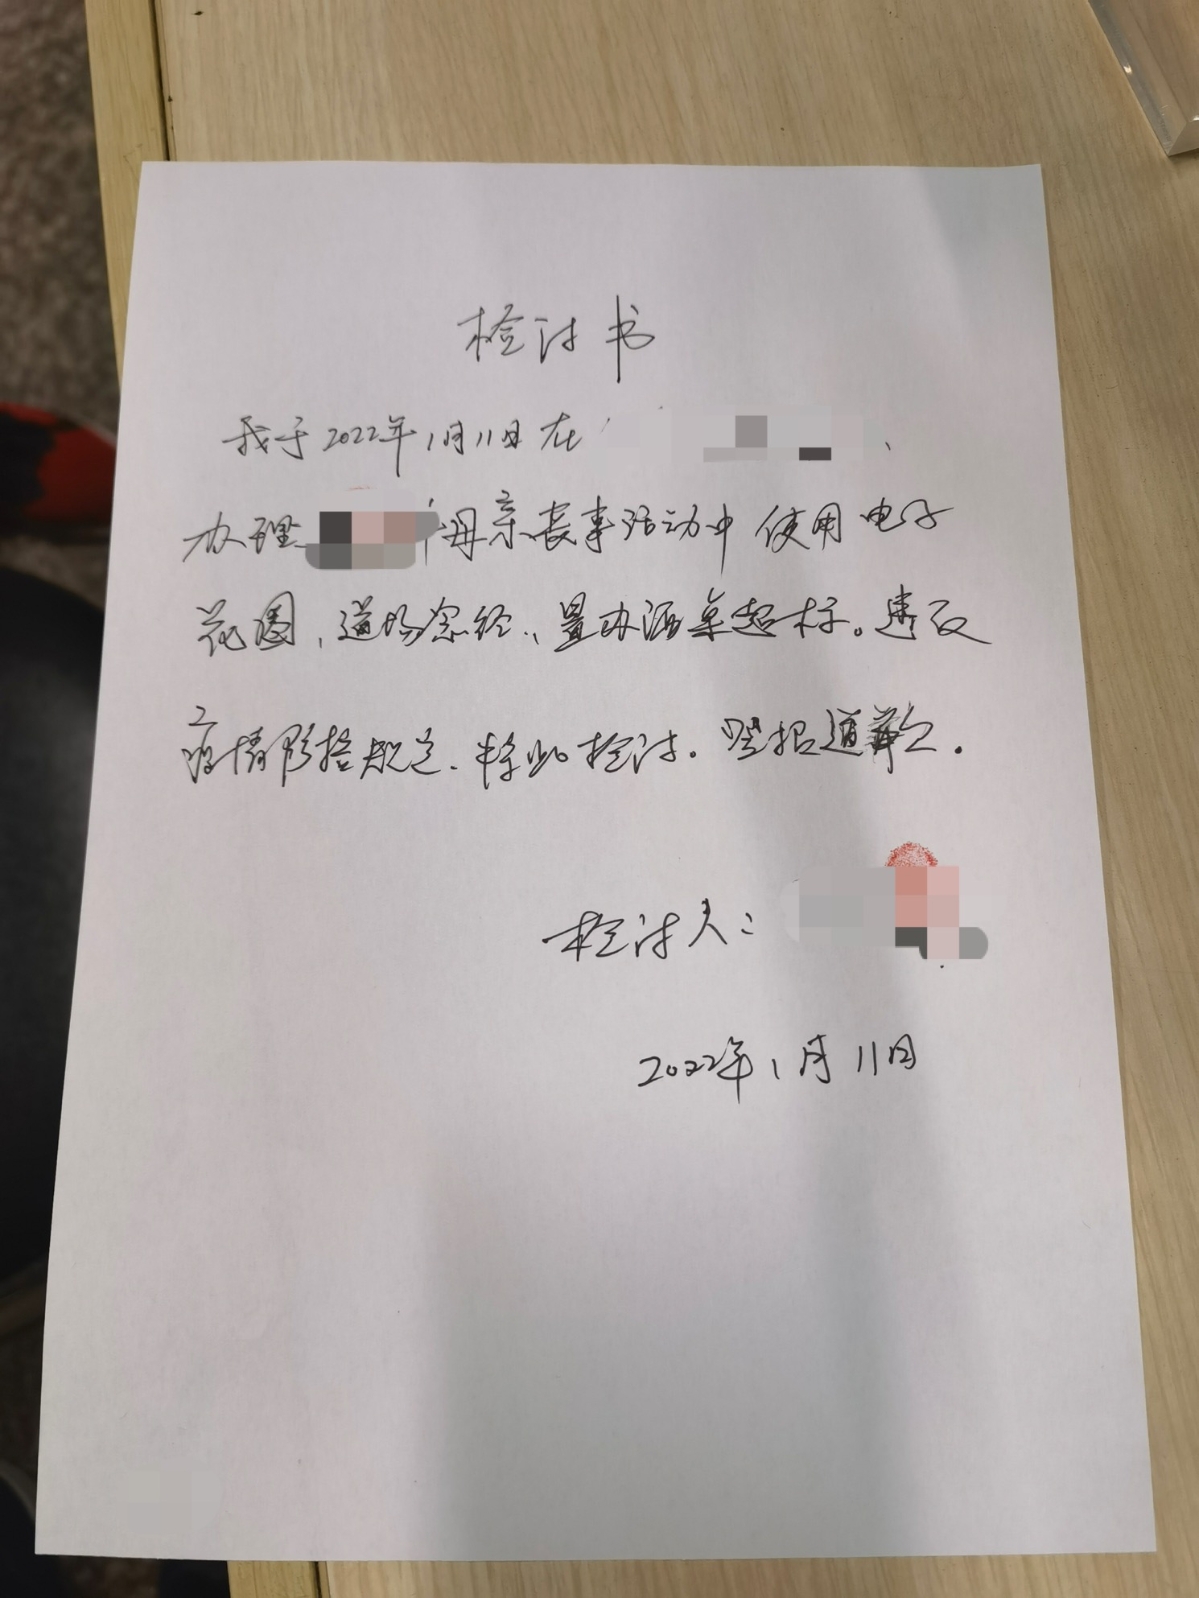 检讨书
我于2022年1月11日在
办理 母亲丧事活动中使用电子
花圈,道场念经,置办酒桌超标。违反
疫情防控规定,特此检讨。登报道歉。
检讨人:
2022年1月11日